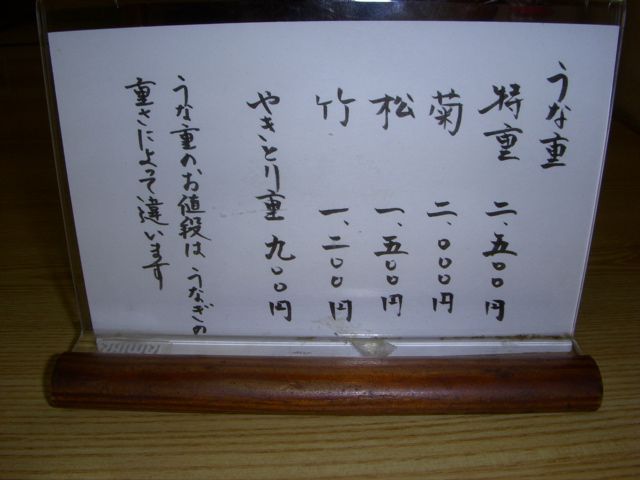 うな重
特重 二、五〇〇円
菊 二、〇〇〇円
松 一、五〇〇円
竹 一、二〇〇円
やきとり重 九〇〇円
うな重のお値段は うなぎの
重さによって違います